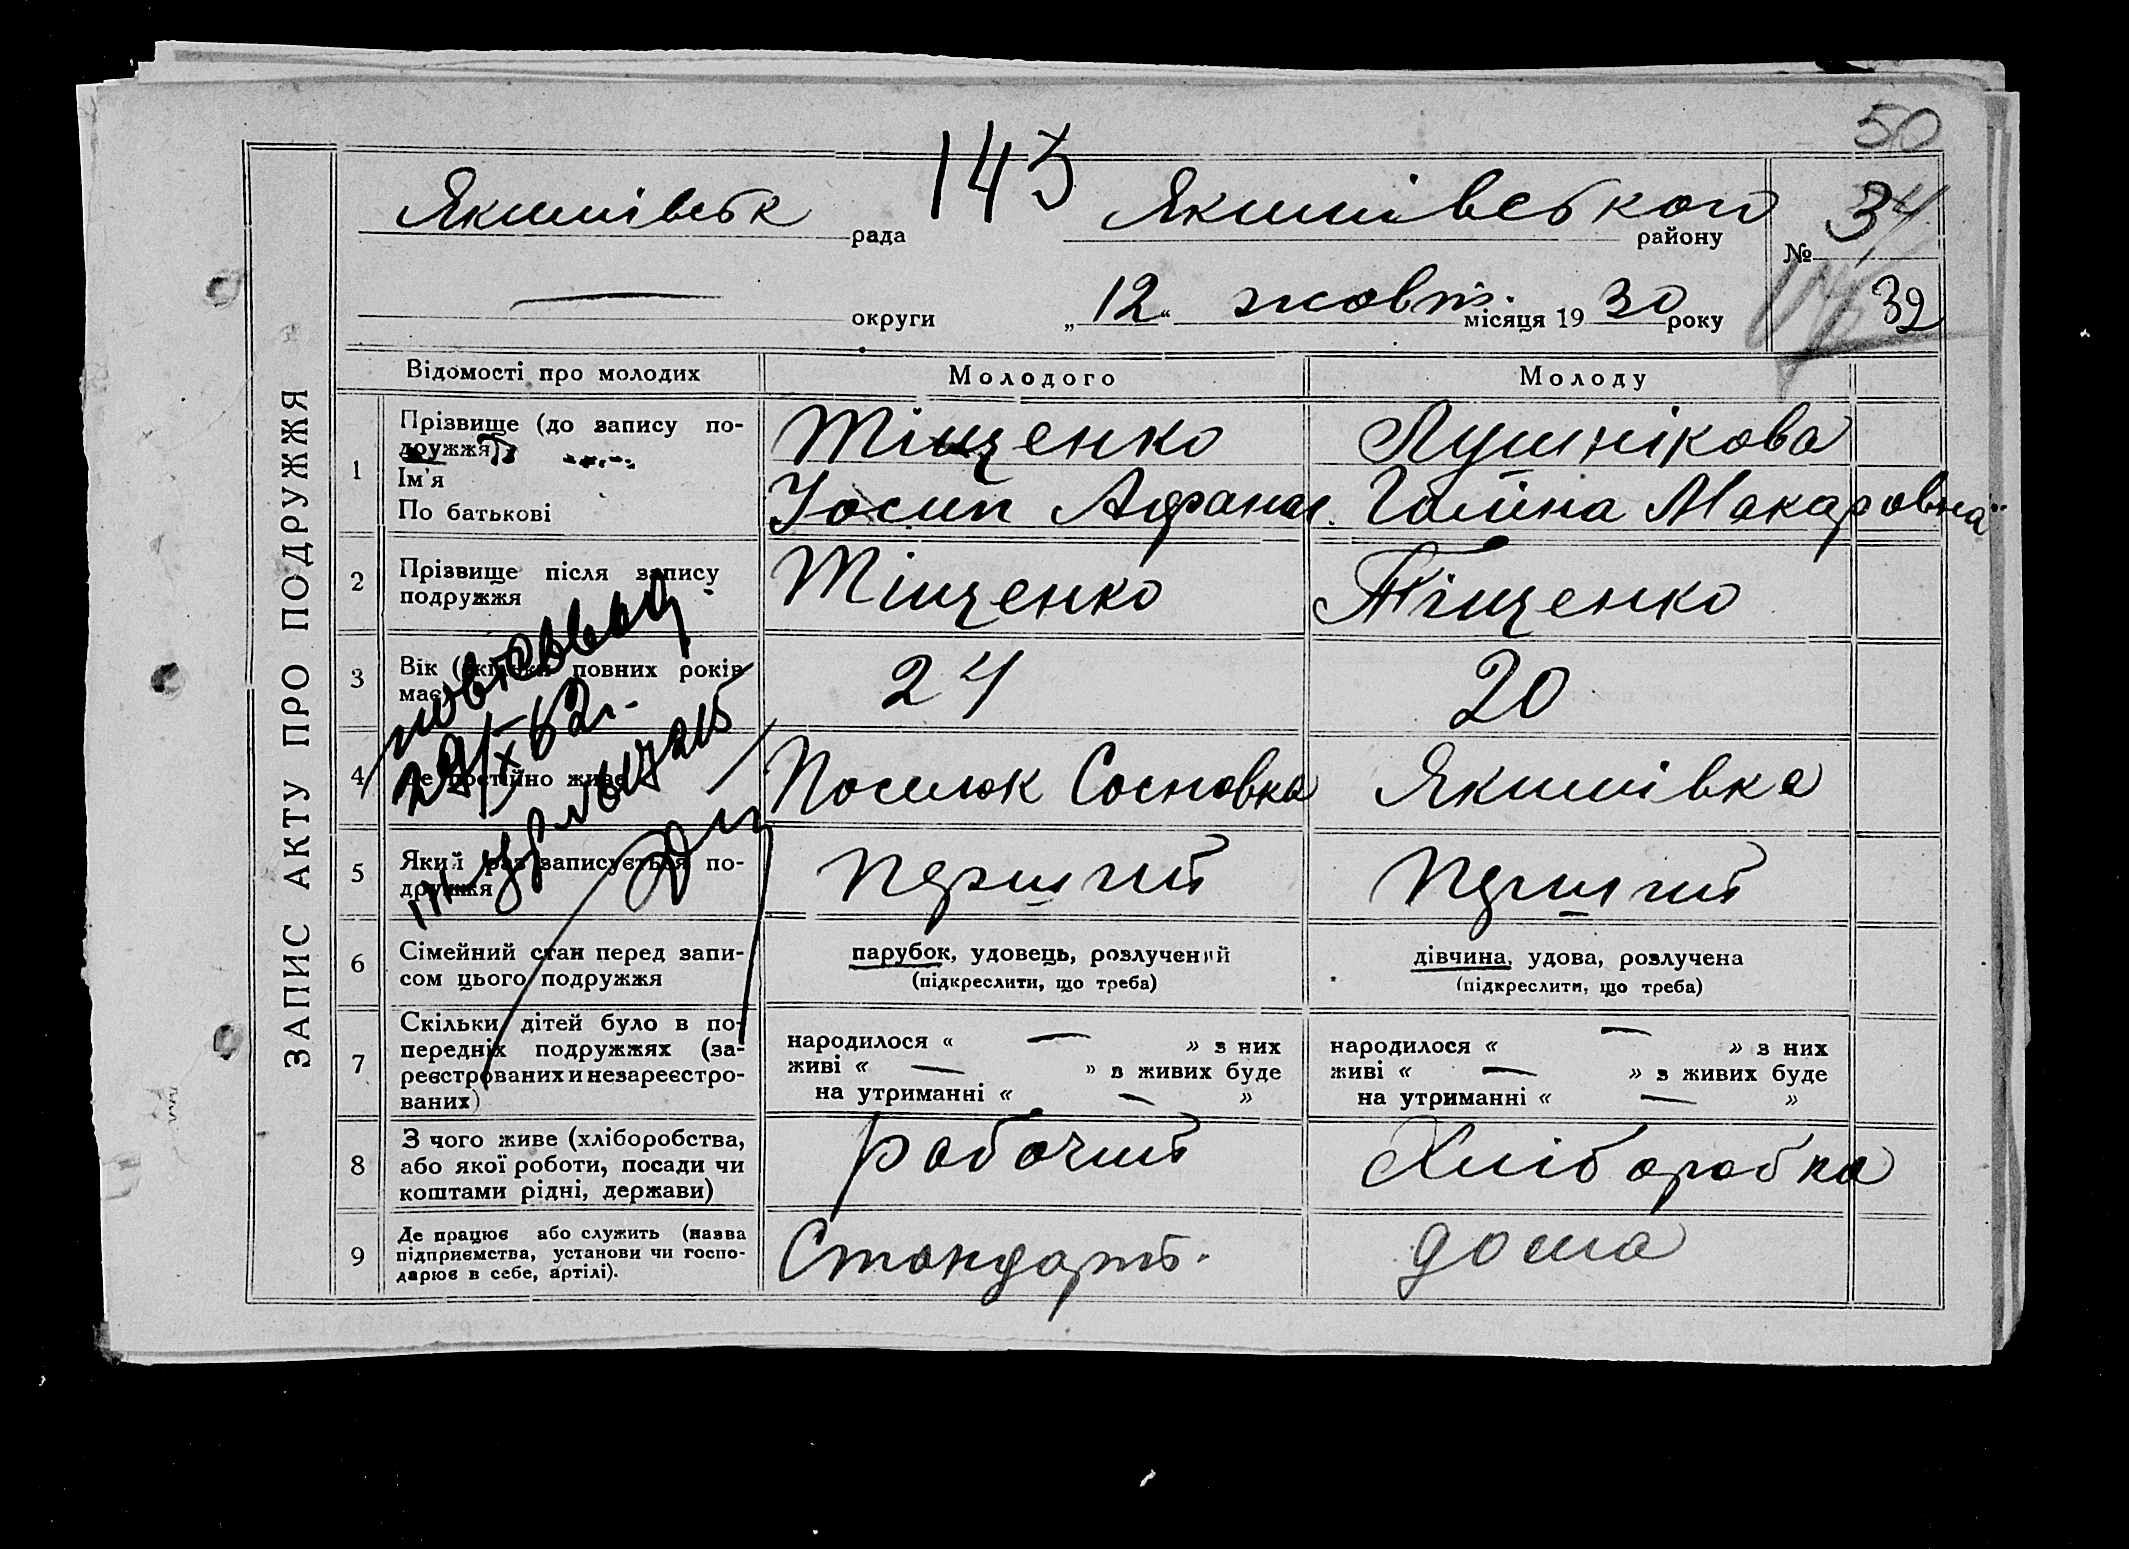 50
143
Якимівськ рада Якимівського району № 34
округи „12“ жовт. місяця 1930 року 39
ЗАПИС АКТУ ПРО ПОДРУЖЖЯ
Відомості про молодих Молодого Молоду
1 Прізвище (до запису подружжя) Тіщенко Лушнікова
Ім'я
По батькові Йосип Афанас. Галіна Макаровна
2 Прізвище після запису
подружжя Тіщенко Тіщенко
3 Вік (скільки повних років
має) 24 20
4 Де постійно живе Посилок Сосновка Якимівка
5 Який раз записується по-
дружжя перший перший
6 Сімейний стан перед запи- парубок, удовець, розлучений дівчина, удова, розлучена
сом цього подружжя (підкреслити, що треба) (підкреслити, що треба)
7 Скільки дітей було в по-
передніх подружжях (за- народилося « — » з них народилося « — » з них
реєстрованих и незареєстро- живі « — » в живих буде живі « — » з живих буде
ваних) на утриманні « — » на утриманні « — »
8 З чого живе (хліборобства,
або якої роботи, посади чи рабочий Хліборобка
коштами рідні, держави)
9 Де працює або служить (назва
підприємства, установи чи госпо- Стандарт. дома
дарює в себе, артілі).
29/X 62 г.